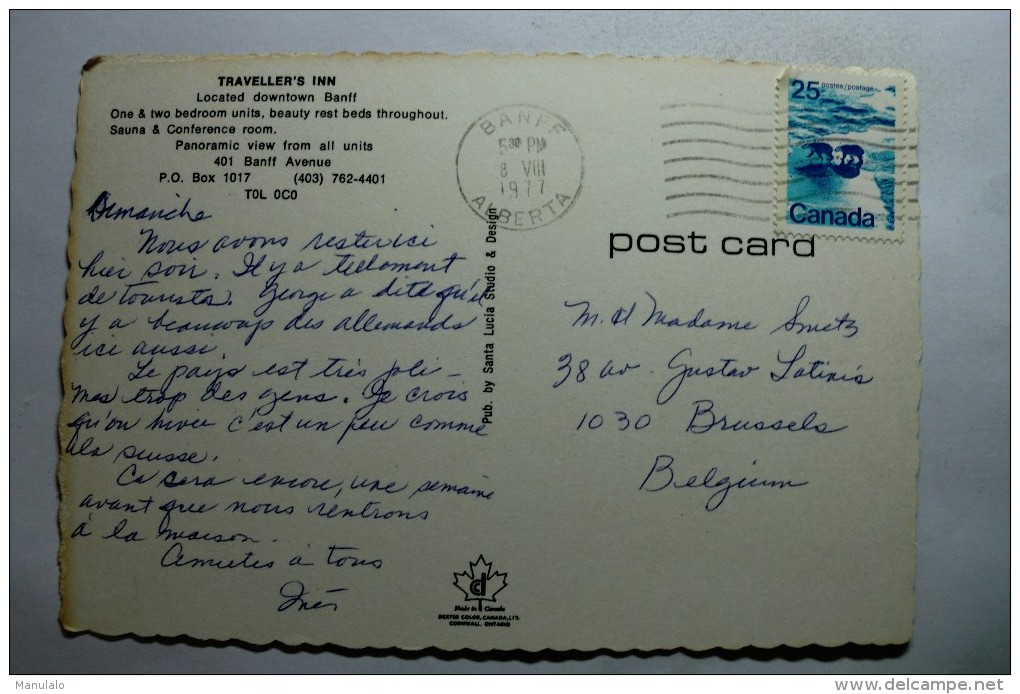 TRAVELLER'S INN
Located downtown Banff
One & two bedroom units, beauty rest beds throughout.
Sauna & Conference room.
Panoramic view from all units
401 Banff Avenue
P.O. Box 1017 (403) 762-4401
T0L 0C0
Dimanche
Nous avons rester ici
hier soir. Il y a tellement
de tourists. George a dit qu'il
y a beaucoup des allemands
ici aussi.
Le pays est très joli -
mas trop des gens. Je crois
qu'on hiver c'est un peu comme
a la suisse.
Ca sera encore, une semaine
avant que nous rentrons
à la maison.
Amities à tous
Inés
Pub. by Santa Lucia Studio & Design
Made in Canada
DEXTER COLOR, CANADA, LTD.
CORNWALL, ONTARIO
BANFF
5 30 PM
8 VIII
1977
ALBERTA
25 postes/postage
Canada
post card
M. et Madame Smets
38 av. Gustav Latinis
1030 Brussels
Belgium
Manulalo
delcampe.net